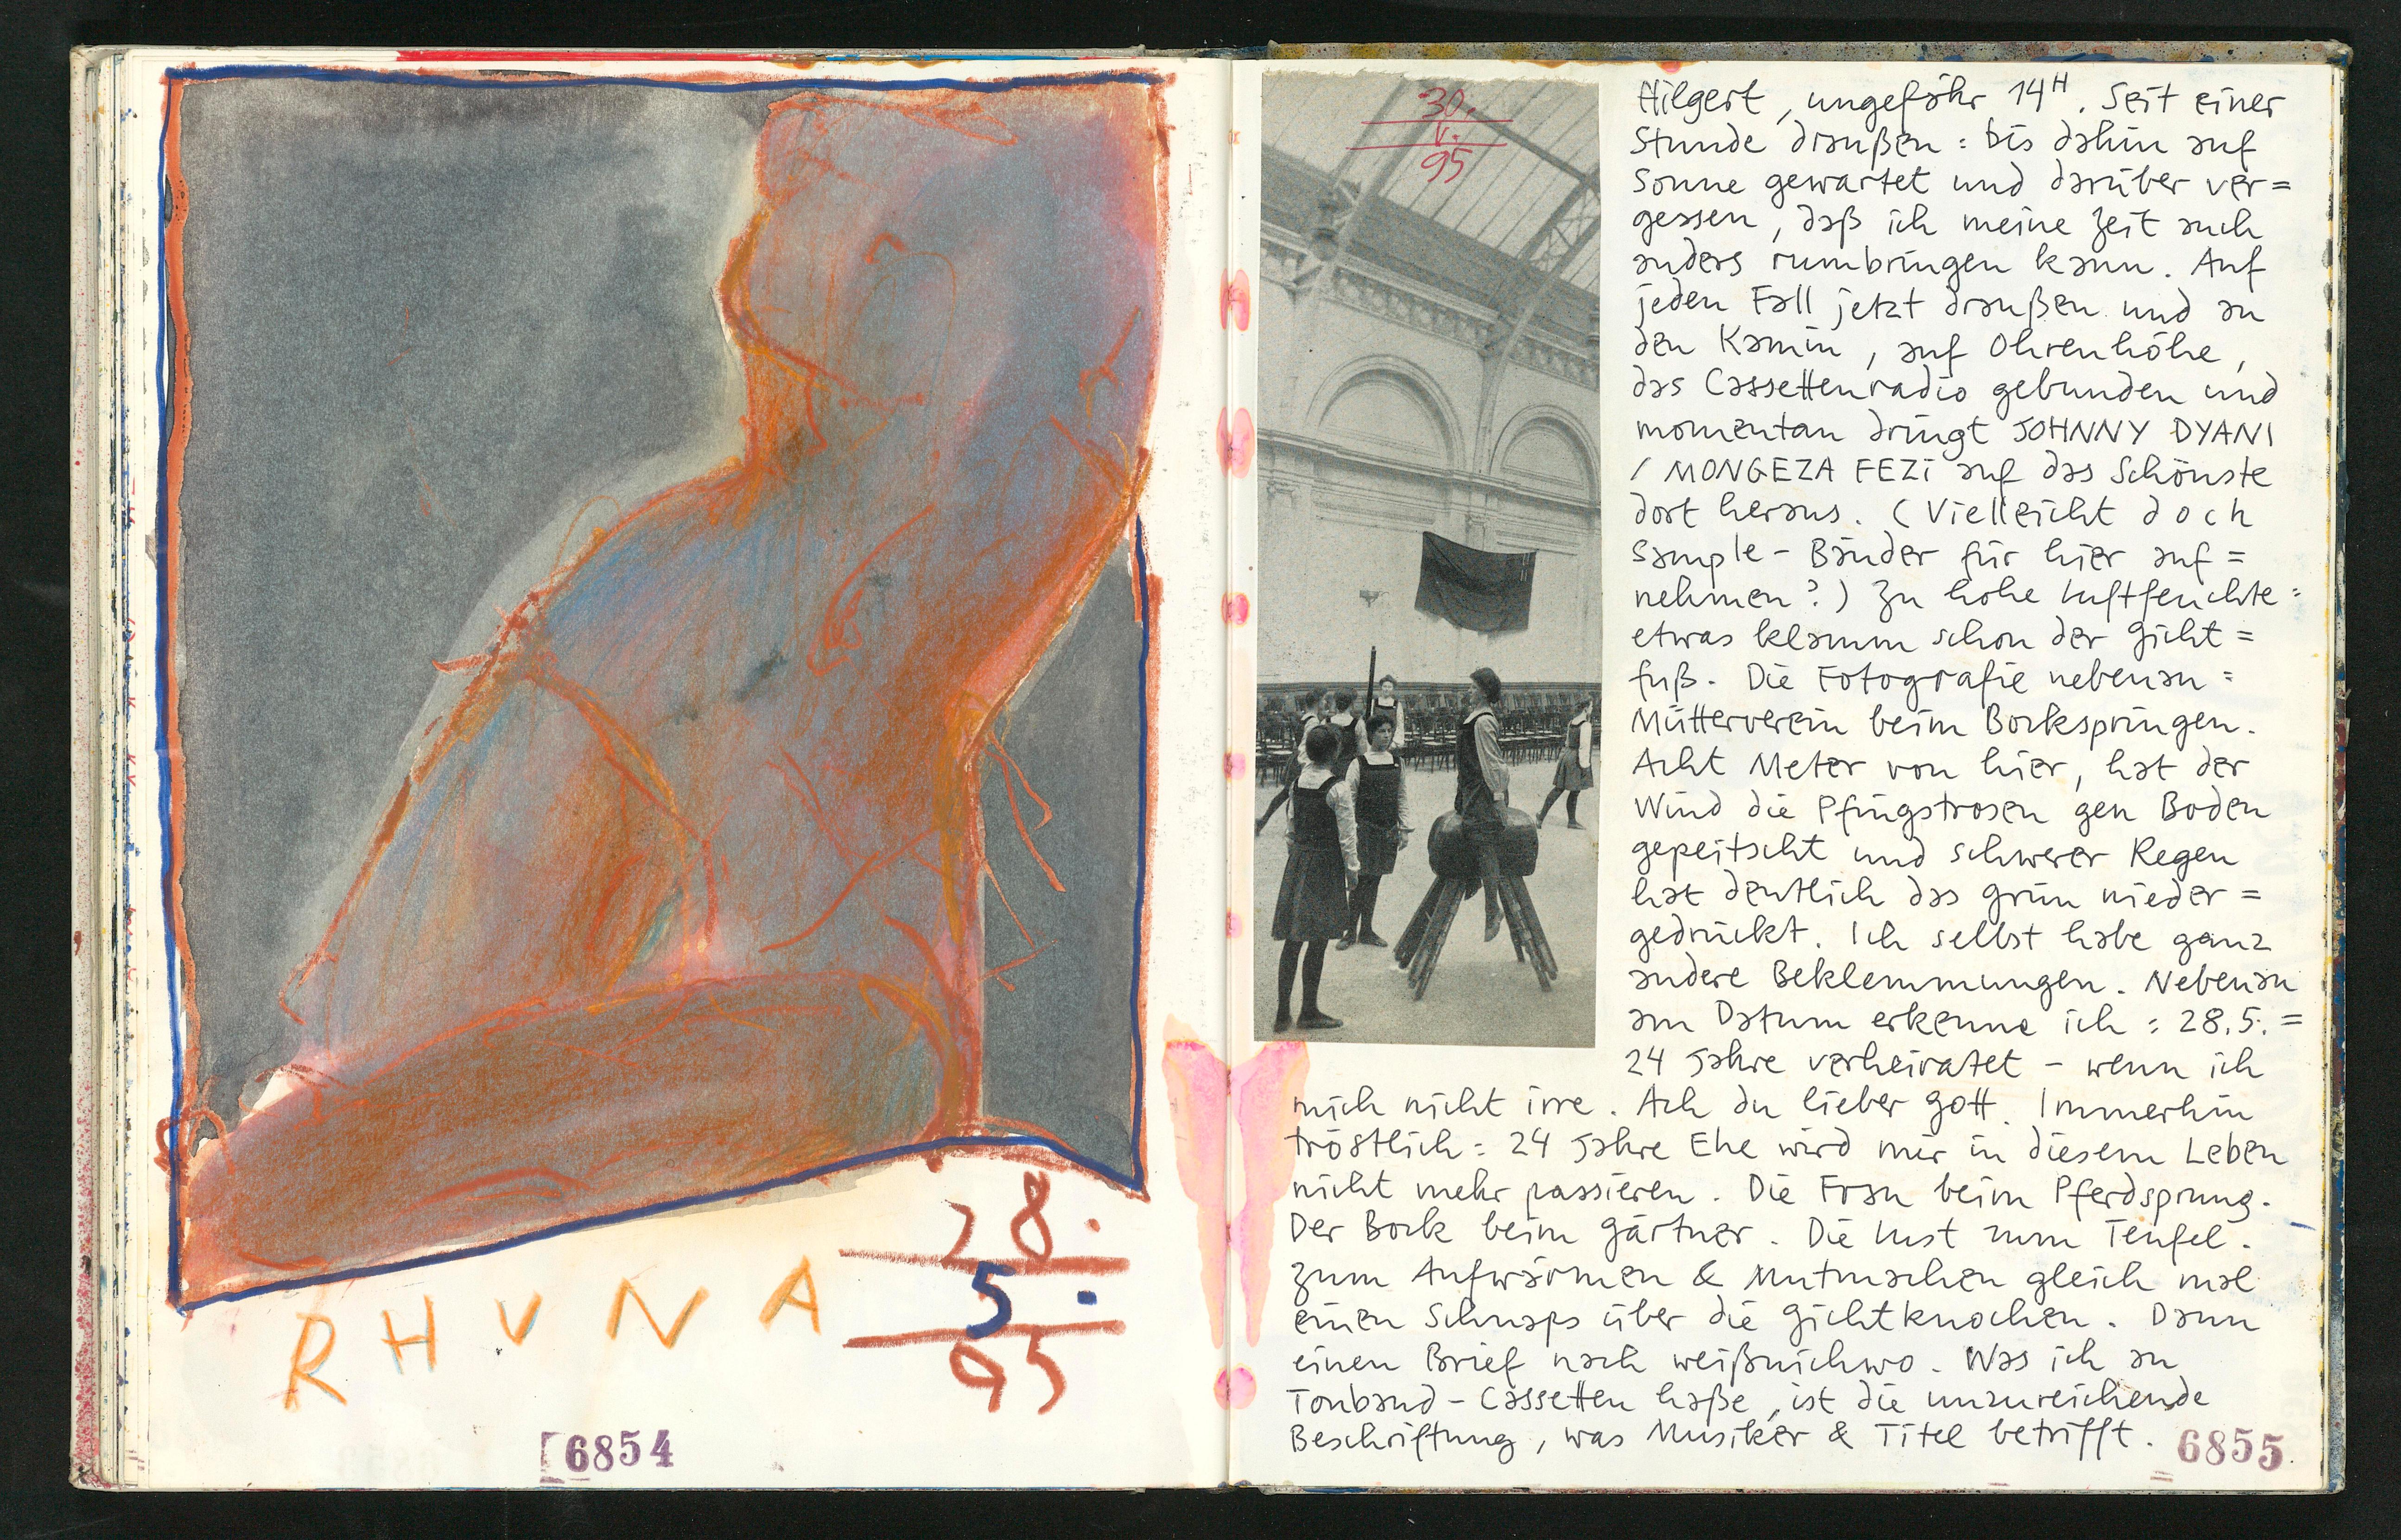 28.
5.
95
RHUNA
6854
30.
V.
95
Hilgert, ungefähr 14H. Seit einer
Stunde draußen: bis dahin auf
Sonne gewartet und darüber ver=
gessen, daß ich meine Zeit auch
anders rumbringen kann. Auf
jeden Fall jetzt draußen und an
den Kamin, auf Ohrenhöhe,
das Cassettenradio gebunden und
momentan dringt JOHNNY DYANI
/ MONGEZA FEZI auf das Schönste
dort heraus. (Vielleicht doch
Sample-Bänder für hier auf=
nehmen?) Zu hohe Luftfeuchte:
etwas klamm schon der Gicht=
fuß. Die Fotografie nebenan:
Mütterverein beim Bockspringen.
Acht Meter von hier, hat der
Wind die Pfingstrosen gen Boden
gepeitscht und schwerer Regen
hat deutlich das Grün nieder=
gedrückt. Ich selbst habe ganz
andere Beklemmungen. Nebenan
am Datum erkenne ich: 28.5. =
24 Jahre verheiratet - wenn ich
mich nicht irre. Ach du lieber Gott. Immerhin
tröstlich: 24 Jahre Ehe wird mir in diesem Leben
nicht mehr passieren. Die Frau beim Pferdsprung.
Der Bock beim Gärtner. Die Lust zum Teufel.
Zum Aufwärmen & Mutmachen gleich mal
einen Schnaps über die Gichtknochen. Dann
einen Brief nach weißnichwo. Was ich an
Tonband-Cassetten haße, ist die unzureichende
Beschriftung, was Musiker & Titel betrifft.
6855